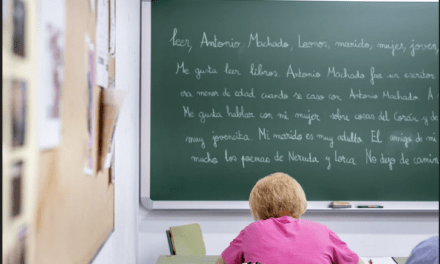 leer, Antonio, Machado, Leonor, marido, mujer, joven,
Me gusta leer libros. Antonio Machado fue un escritor
era menor de edad cuando se caso con Antonio Machado. A
Me gusta hablar con mi mujer sobre cosas del Corazón y de
muy jovencita. Mi marido es muy adulto. El amigo de mi
mucho los poemas de Neruda y Lorca. No dejo de camin